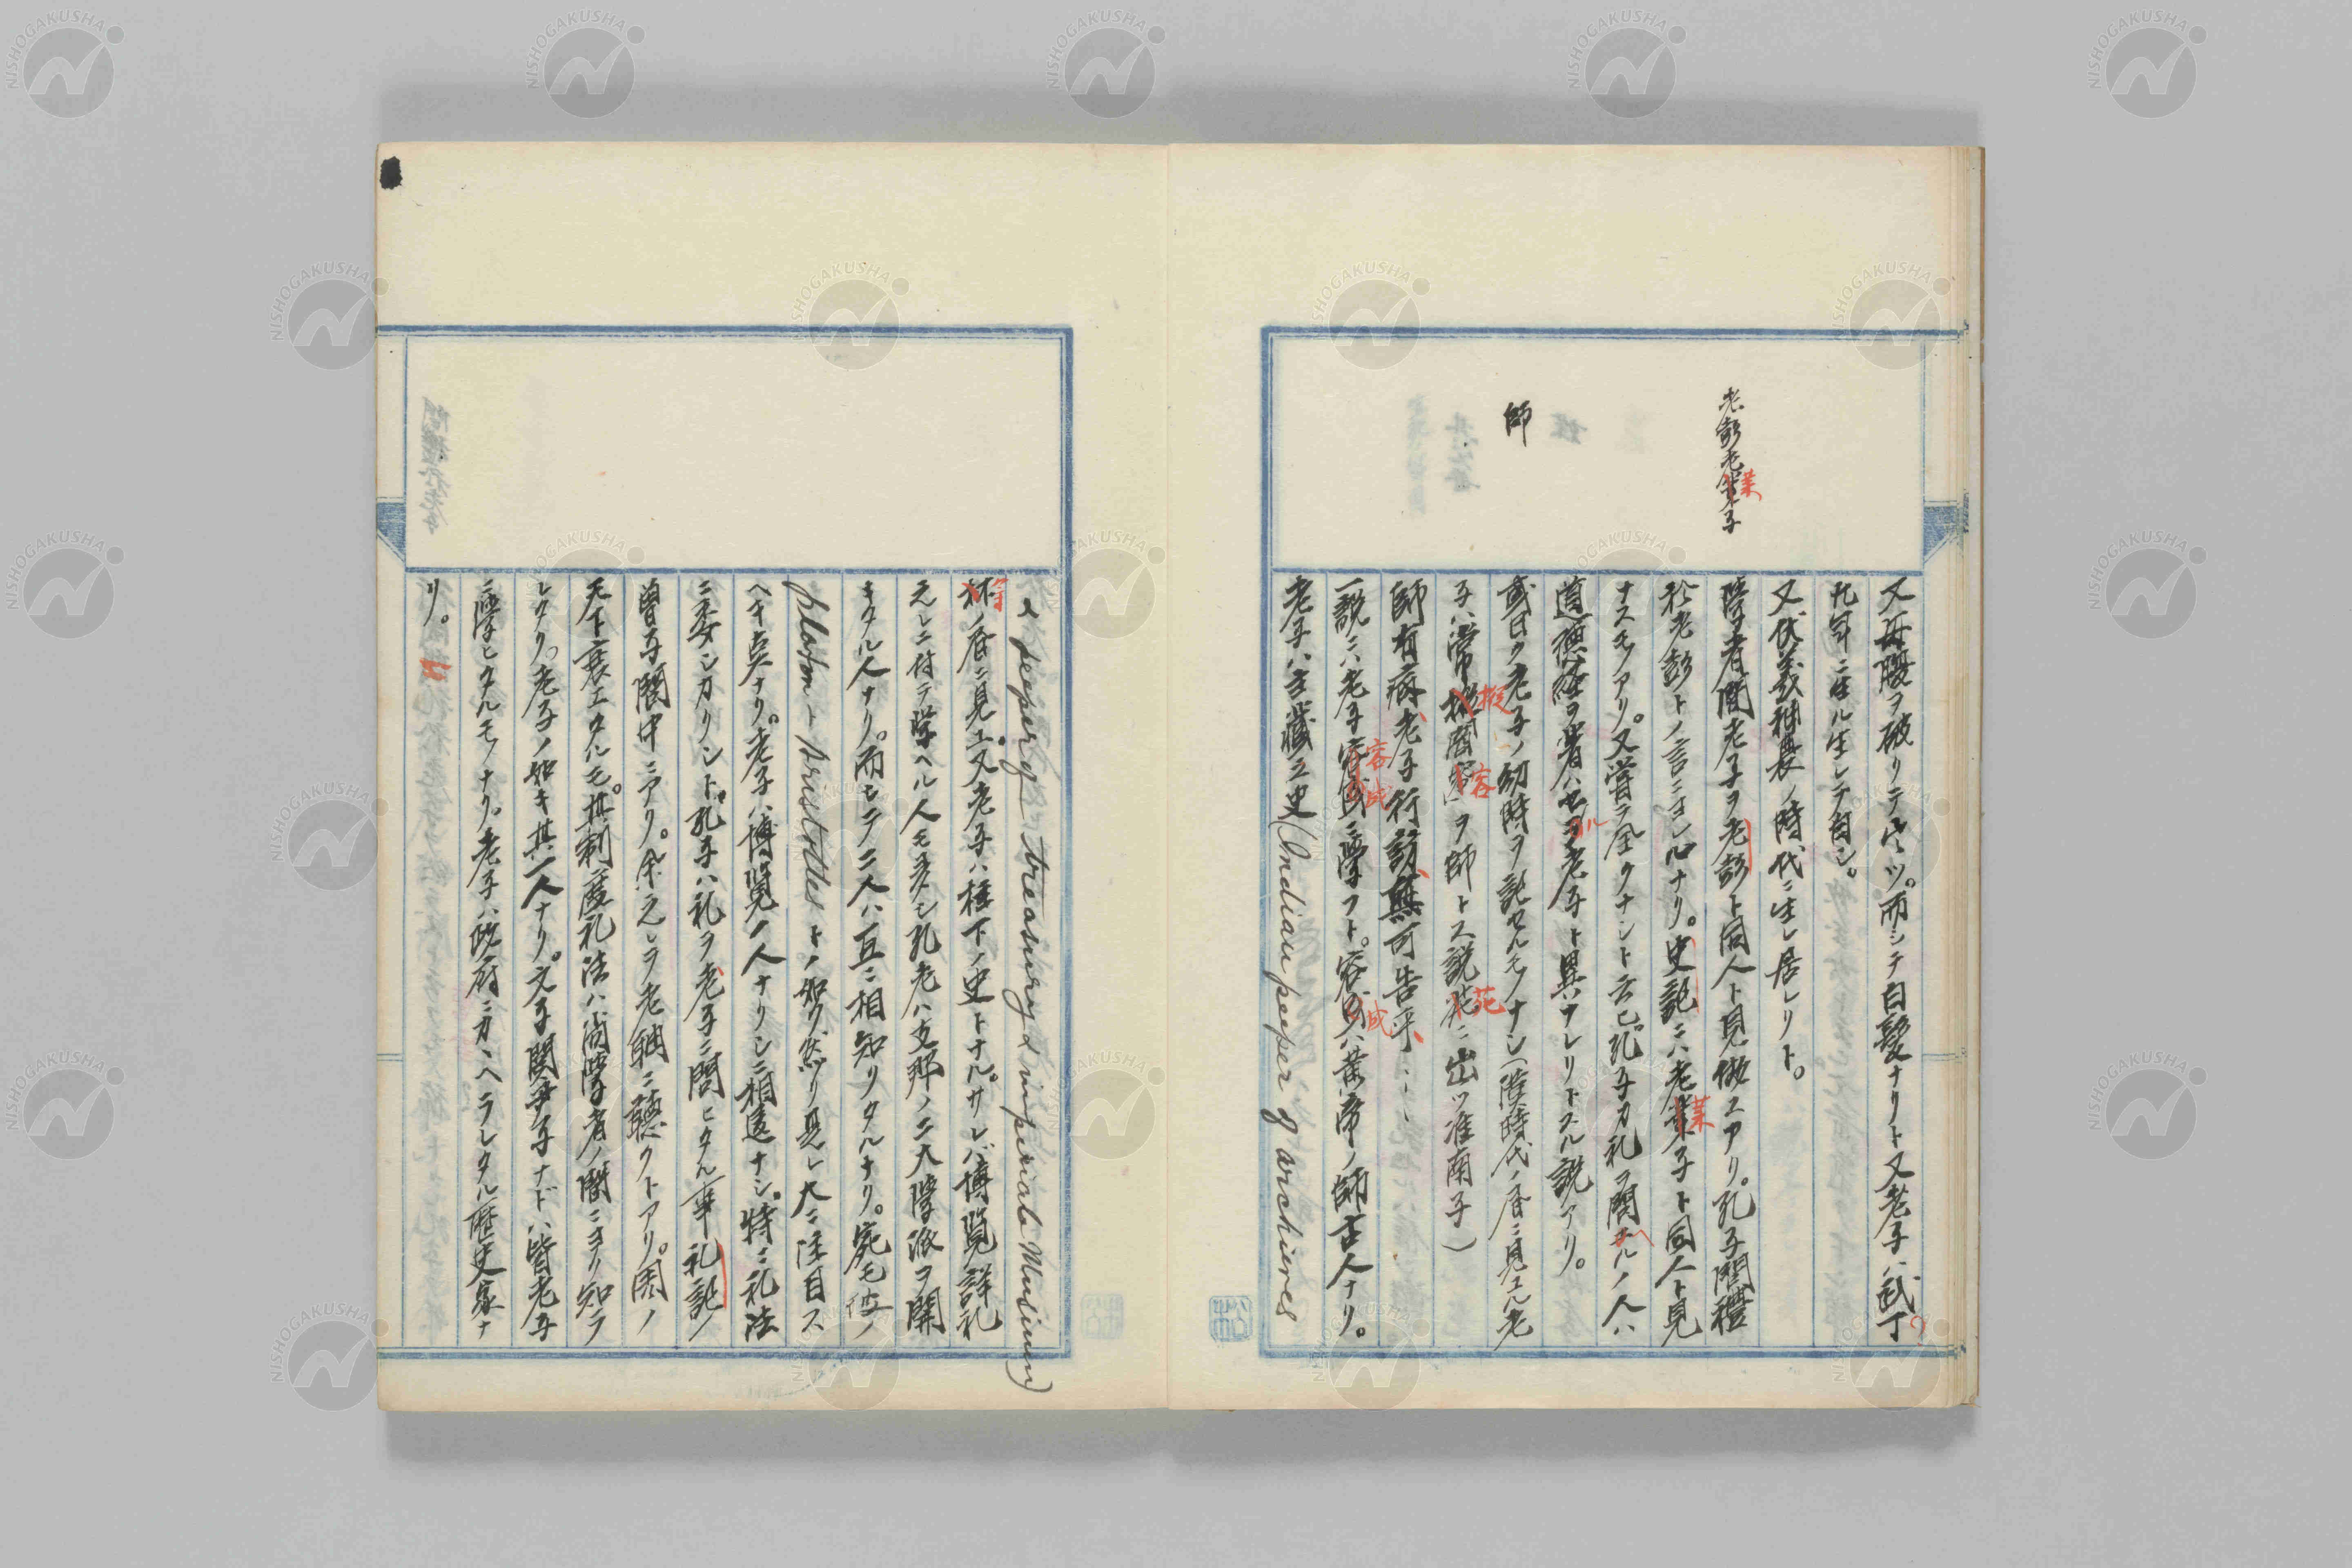 老彭老莱子
師
又母腹ヲ破リテ出ヅ。而シテ白髮ナリト又老子ハ武丁
九年ニ生ル生レテ白シ。
又伏羲神農ノ時代ニ生レ居レリト。
學者間老子ヲ老彭ト同人ト見做スアリ。孔子問禮
於老彭トノ言ニヨレルナリ。史記ニハ老莱子ト同人ト見
ナスモアリ。又嘗テ全クナシト云已孔子カ礼ヲ問ヘルノ人ハ
道徳経ヲ著ハセル老子ト異ナレリトスル説アリ。
或曰ク老子ノ幼時ヲ記セルモノナシ(漢時代ノ书ニ見エル老
子ハ常樅
ヲ師トス説苑ニ出ツ淮南子)
師有病老子行訪無可告乎
一説ニハ老子容成ニ學フト。容成ハ黄帝ノ師古人ナリ。
老子ハ主藏之史(Indian peeper of archieves
& peeper of treasury & imperial Musium)
等ノ書ニ見ユ又老子ハ柱下ノ史トナル。サレバ博覧詳礼
之レニ付テ學ヘル人モ多シ孔老ハ支那ノ二大學派ヲ開
キタル人ナリ。而シテ二人ハ互ニ相知リタルナリ。宛モ彼ノ
platon ト Aristotles トノ如ク然リ是レ大ニ注目ス
ヘキ点ナリ。老子ハ博覧ノ人ナリシニ相違ナシ。特ニ礼法
ニ委シカリシト。孔子ハ礼ヲ老子ニ問ヒタル事礼記ノ
曽子問中ニアリ。余之レヲ老聃ニ聴クトアリ。周ノ
天下衰エタルモ。其制度礼法ハ尚學者ノ間ニヨリ知ラ
レタリ。老子ノ如キ其一人ナリ。文子関尹子ナドハ皆老子
ニ學ヒタルモノナリ。老子ハ政府ニカヽヘラレタル歴史家ナ
リ。